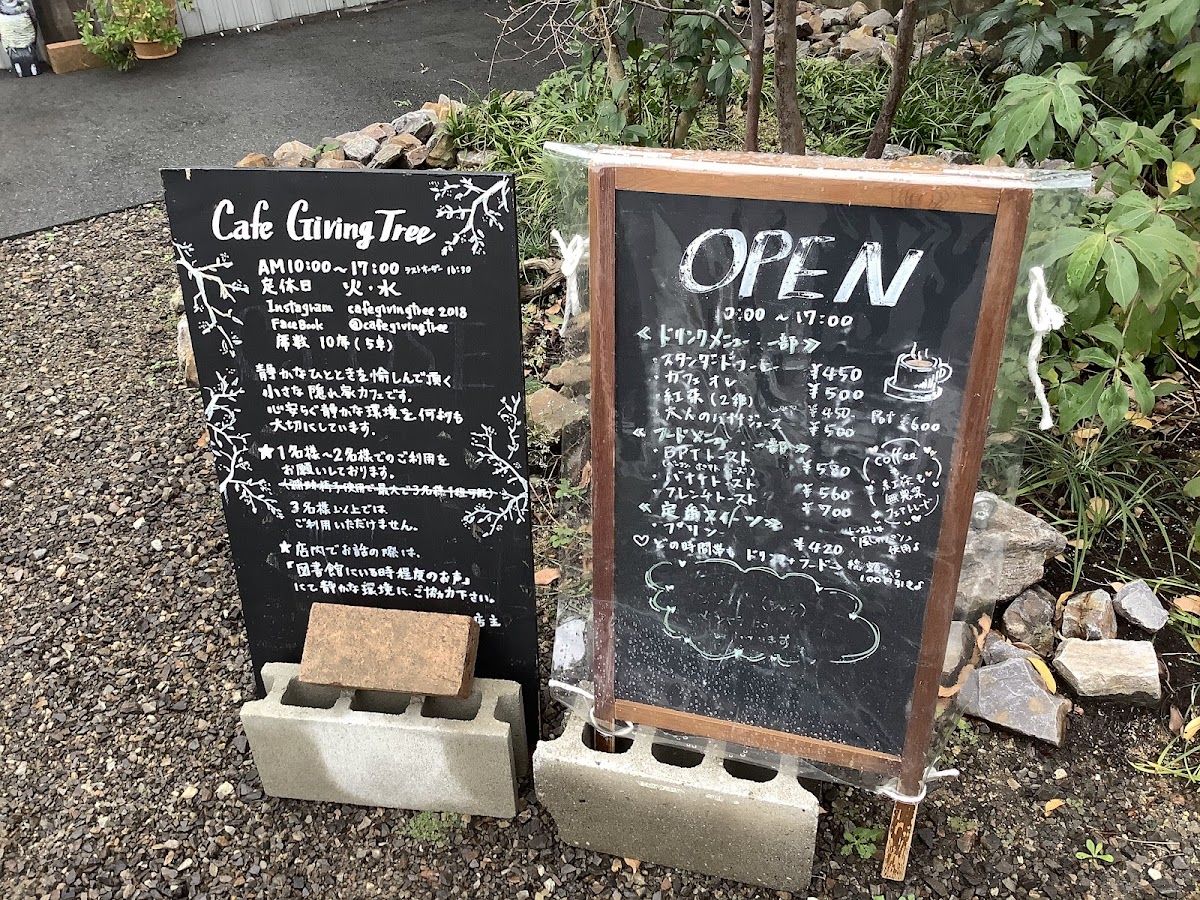 Cafe Giving Tree
AM10:00〜17:00 ラストオーダー 16:30
定休日 火・水
Instagram cafegivingtree2018
FaceBook @cafegivingtree
席数 10席(5卓)
静かなひとときを愉しんで頂く
小さな隠れ家カフェです。
心安らぐ静かな環境を何よりも
大切にしています。
★1名様〜2名様でのご利用を
お願いしております。
3名様以上では
ご利用いただけません。
★店内でお話の際は、
『図書館にいる時程度のお声』
にて静かな環境にご協力下さい。
店主
OPEN
10:00 〜 17:00
≪ドリンクメニュー 一部≫
・スタンダードコーヒー ¥450
・カフェオレ ¥500
・紅茶(2杯) ¥450 Pot ¥600
・大人のバナナジュース ¥500
≪フードメニュー 一部≫
・BPTトースト ¥580
・バナナトースト ¥560
・フレンチトースト ¥700
≪定番スイーツ≫
・プリン ¥420
♡どの時間帯も ドリンク+フードで 総額から
100円引き♪
coffee
紅茶も
無農薬
フェアトレード
トーストは
使用♪